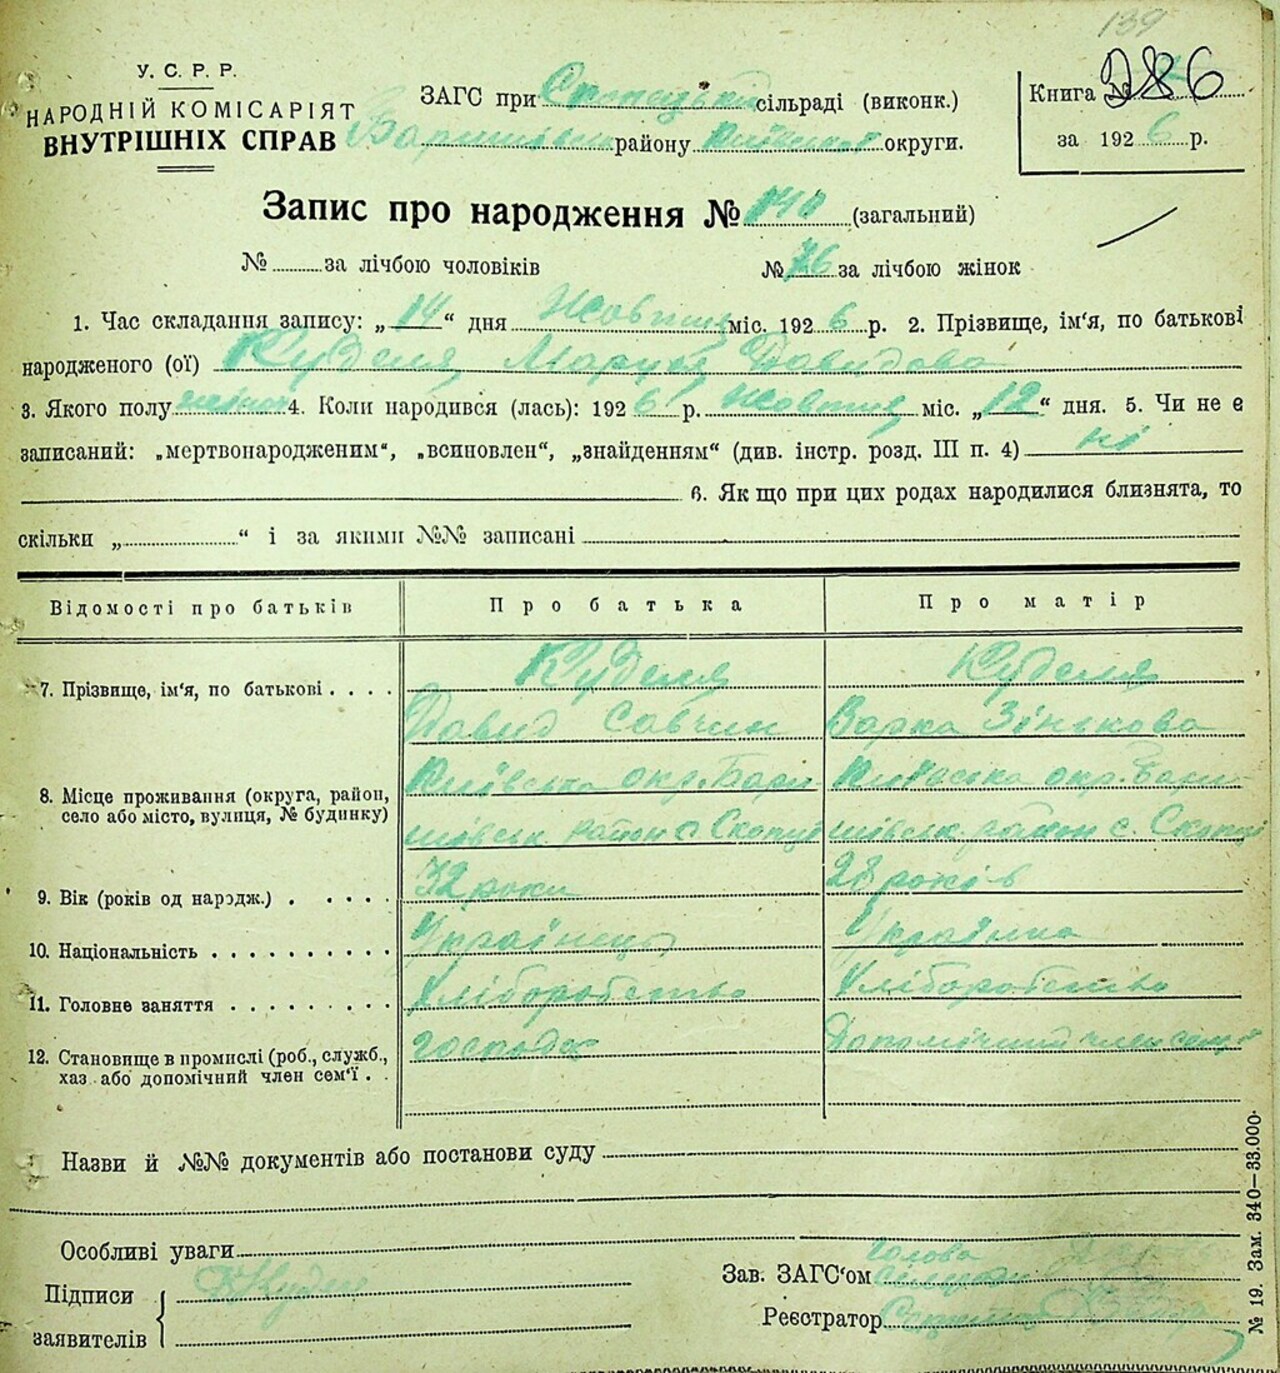 139
У. С. Р. Р.
НАРОДНІЙ КОМІСАРІЯТ
ВНУТРІШНІХ СПРАВ
ЗАГС при сільраді (виконк.)
району Київської округи.
Книга № 286
за 1926 р.
Запис про народження № 140 (загальний)
№ за лічбою чоловіків № 76 за лічбою жінок
1. Час складання запису: „14“ дня Жовтня міс. 1926 р. 2. Прізвище, ім‘я, по батькові
народженого (ої) Куделя Маруся Давидова
3. Якого полу жіноч 4. Коли народився (лась): 1926 р. Жовтня міс. „12“ дня. 5. Чи не є
записаний: „мертвонародженим“, „всиновлен“, „знайденням“ (див. інстр. розд. III п. 4) ні
6. Як що при цих родах народилися близнята, то
скільки „ “ і за якими №№ записані
Відомості про батьків Про батька Про матір
7. Прізвище, ім‘я, по батькові . . . . Куделя Куделя
Давид Савчин Варка Зінькова
8. Місце проживання (округа, район, Київська окр. Бари Київська окр. Бари
село або місто, вулиця, № будинку) шівськ. район с. Скопці шівськ. район с. Скопці
9. Вік (років од народж.) . . . . . 32 роки 28 років
10. Національність . . . . . . . . . . Українець Українка
11. Головне заняття . . . . . . . . . Хліборобство Хліборобство
12. Становище в промислі (роб., служб., господар Допомічний член семї
хаз. або допомічний член сем‘ї . .
Назви й №№ документів або постанови суду
Особливі уваги
Голова
Зав. ЗАГС‘ом сільради
Підписи
заявителів
Реєстратор
№ 19. Зам. 340—33.000.